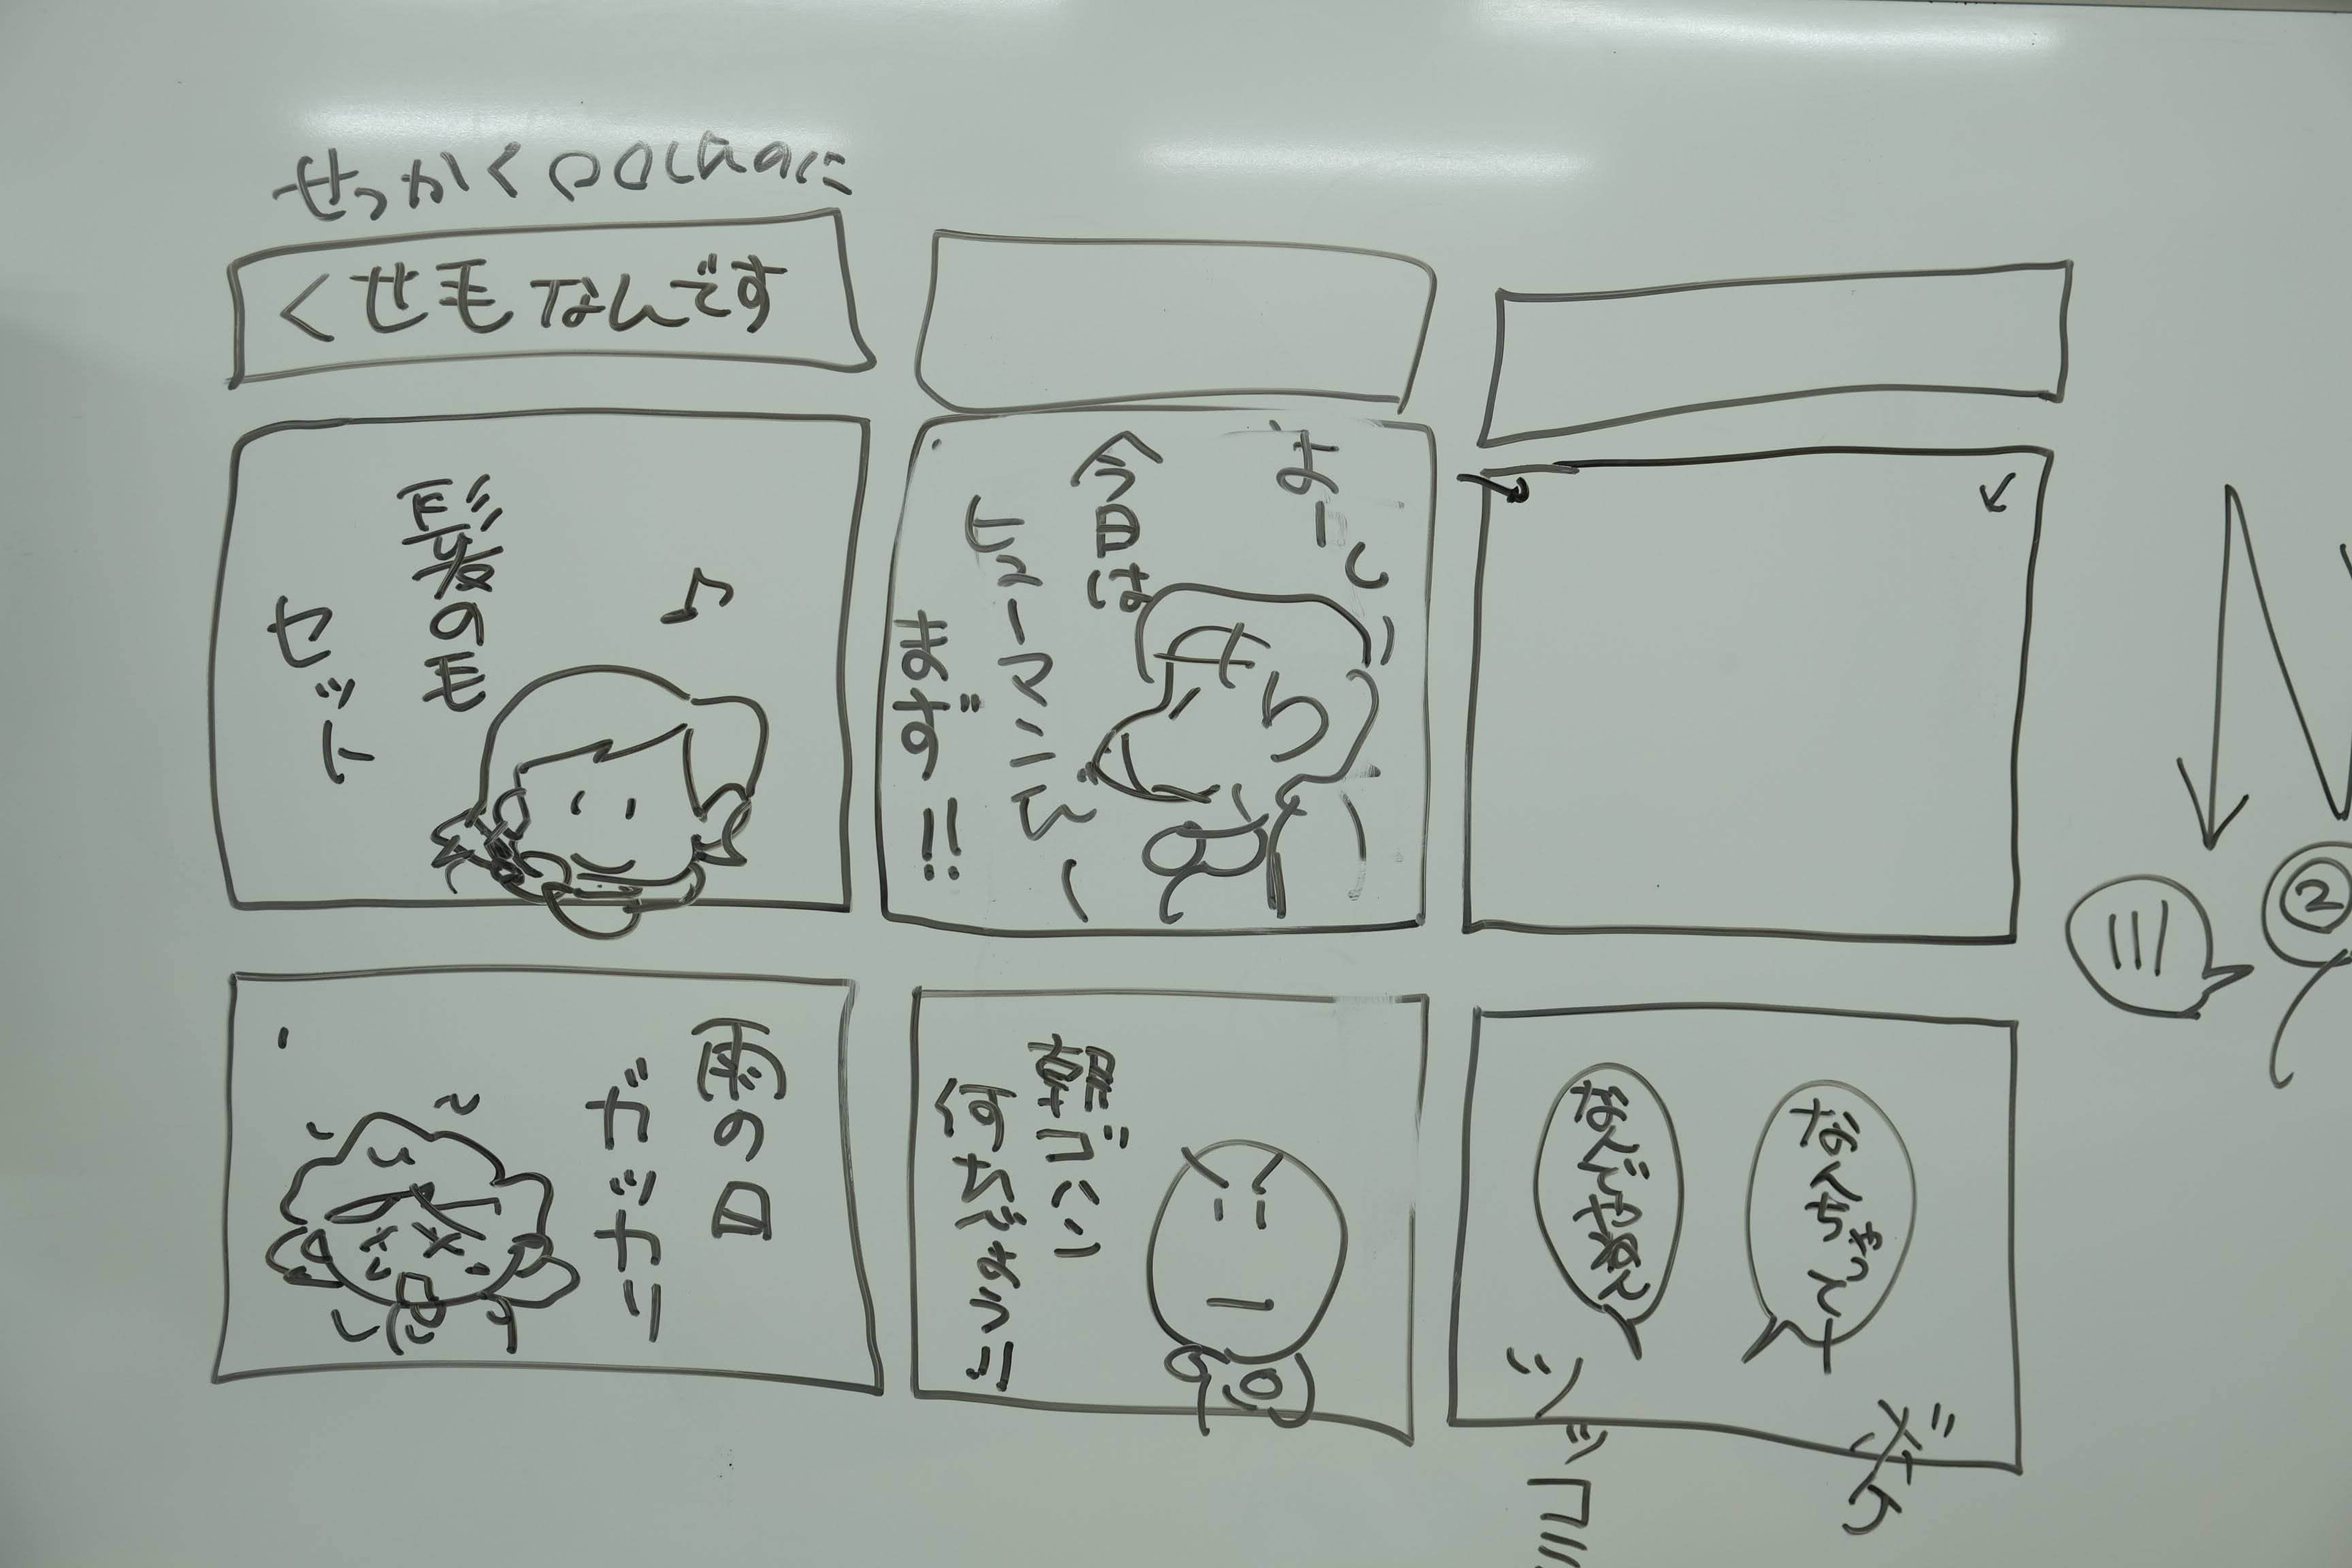 せっかく○○したのに
くせ毛なんです
髪の毛
セット
♪
雨の日
ガッカリ
よーし
今日は
ヒューマンで
まず!!
朝ゴハン
何たべよう
なんちゃって
なんでやねん
ボケ
ツッコミ
②